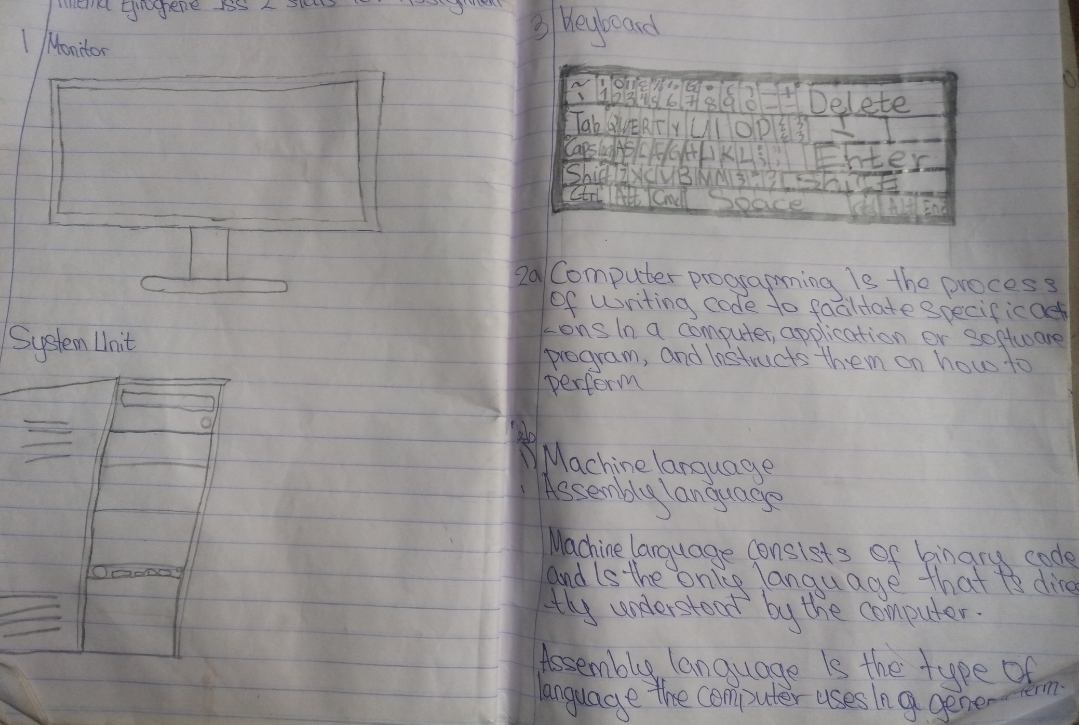 JSS 2
1 Monitor
System Unit
3 Keyboard
Delete
Tab QWERTY U I O P
Caps
Enter
Shif ZXCVBNM
Shift
Ctrl Alt Cmd Space Alt
2a Computer programming is the process
of writing code to facilitate specific act
-ions in a computer, application or software
program, and instructs them on how to
perform
2b
i) Machine language
Assembly language
Machine language consists of binary code
and is the only language that is direc
tly understood by the computer.
Assembly language is the type of
language the computer uses in a gener term.